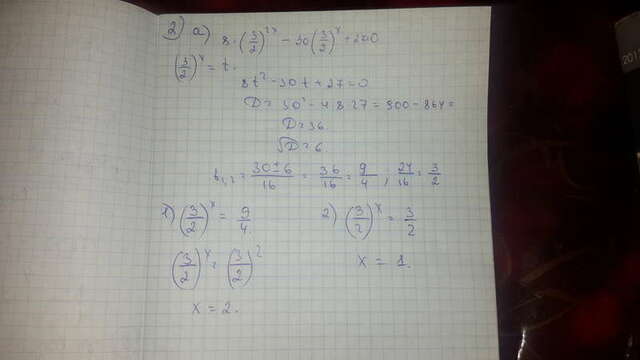 2) а) 8·(3/2)^2x − 30(3/2)^x + 27=0
(3/2)^x = t.
8t² − 30t + 27 = 0
D = 30² − 4·8·27 = 900 − 864 =
D = 36
√D = 6
t₁,₂ = (30±6)/16 = 36/16 = 9/4 ; 24/16 = 3/2
1) (3/2)^x = 9/4 2) (3/2)^x = 3/2
(3/2)^x = (3/2)^2 x = 1.
x = 2.
201